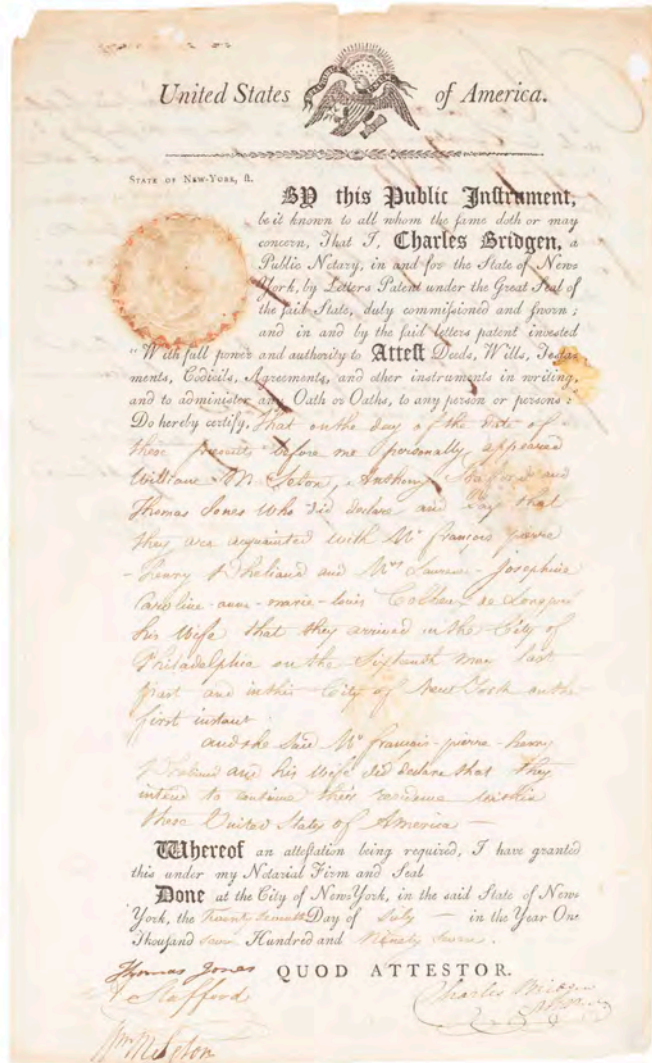 United States of America.
STATE OF NEW-YORK, ſſ.
BY this Public Inſtrument,
be it known to all whom the ſame doth or may
concern, That I, Charles Bridgen, a
Public Notary, in and for the State of New-
York, by Letters Patent under the Great Seal of
the ſaid State, duly commiſſioned and ſworn;
and in and by the ſaid letters patent inveſted
"With full power and authority to Atteſt Deeds, Wills, Teſta-
ments, Codicils, Agreements, and other inſtruments in writing,
and to adminiſter any Oath or Oaths, to any person or persons:
Do hereby certify, That on the day of the date of
these present, before me personally appeared
William M Seton, Anthony Stafford and
Thomas Jones Who did declare and Say that
they are acquainted with Mr françois pierre
-henry and Mrs Laurence-Josephine
Caroline-anne-marie-louis de
his Wife that they arrived in the City of
Philadelphia on the Sixteenth may last
past and in this City of New York on the
first instant
and the Said Mr françois-pierre-henry
and his Wife did declare that they
intend to continue their residence within
these United States of America —
Whereof an atteſtation being required, I have granted
this under my Notarial Firm and Seal
Done at the City of New-York, in the said State of New-
York, the Day of July — in the Year One
Thouſand Seven Hundred and Ninety Seven.
Thomas Jones QUOD ATTESTOR.
Stafford Charles Bridgen
Wm M Seton